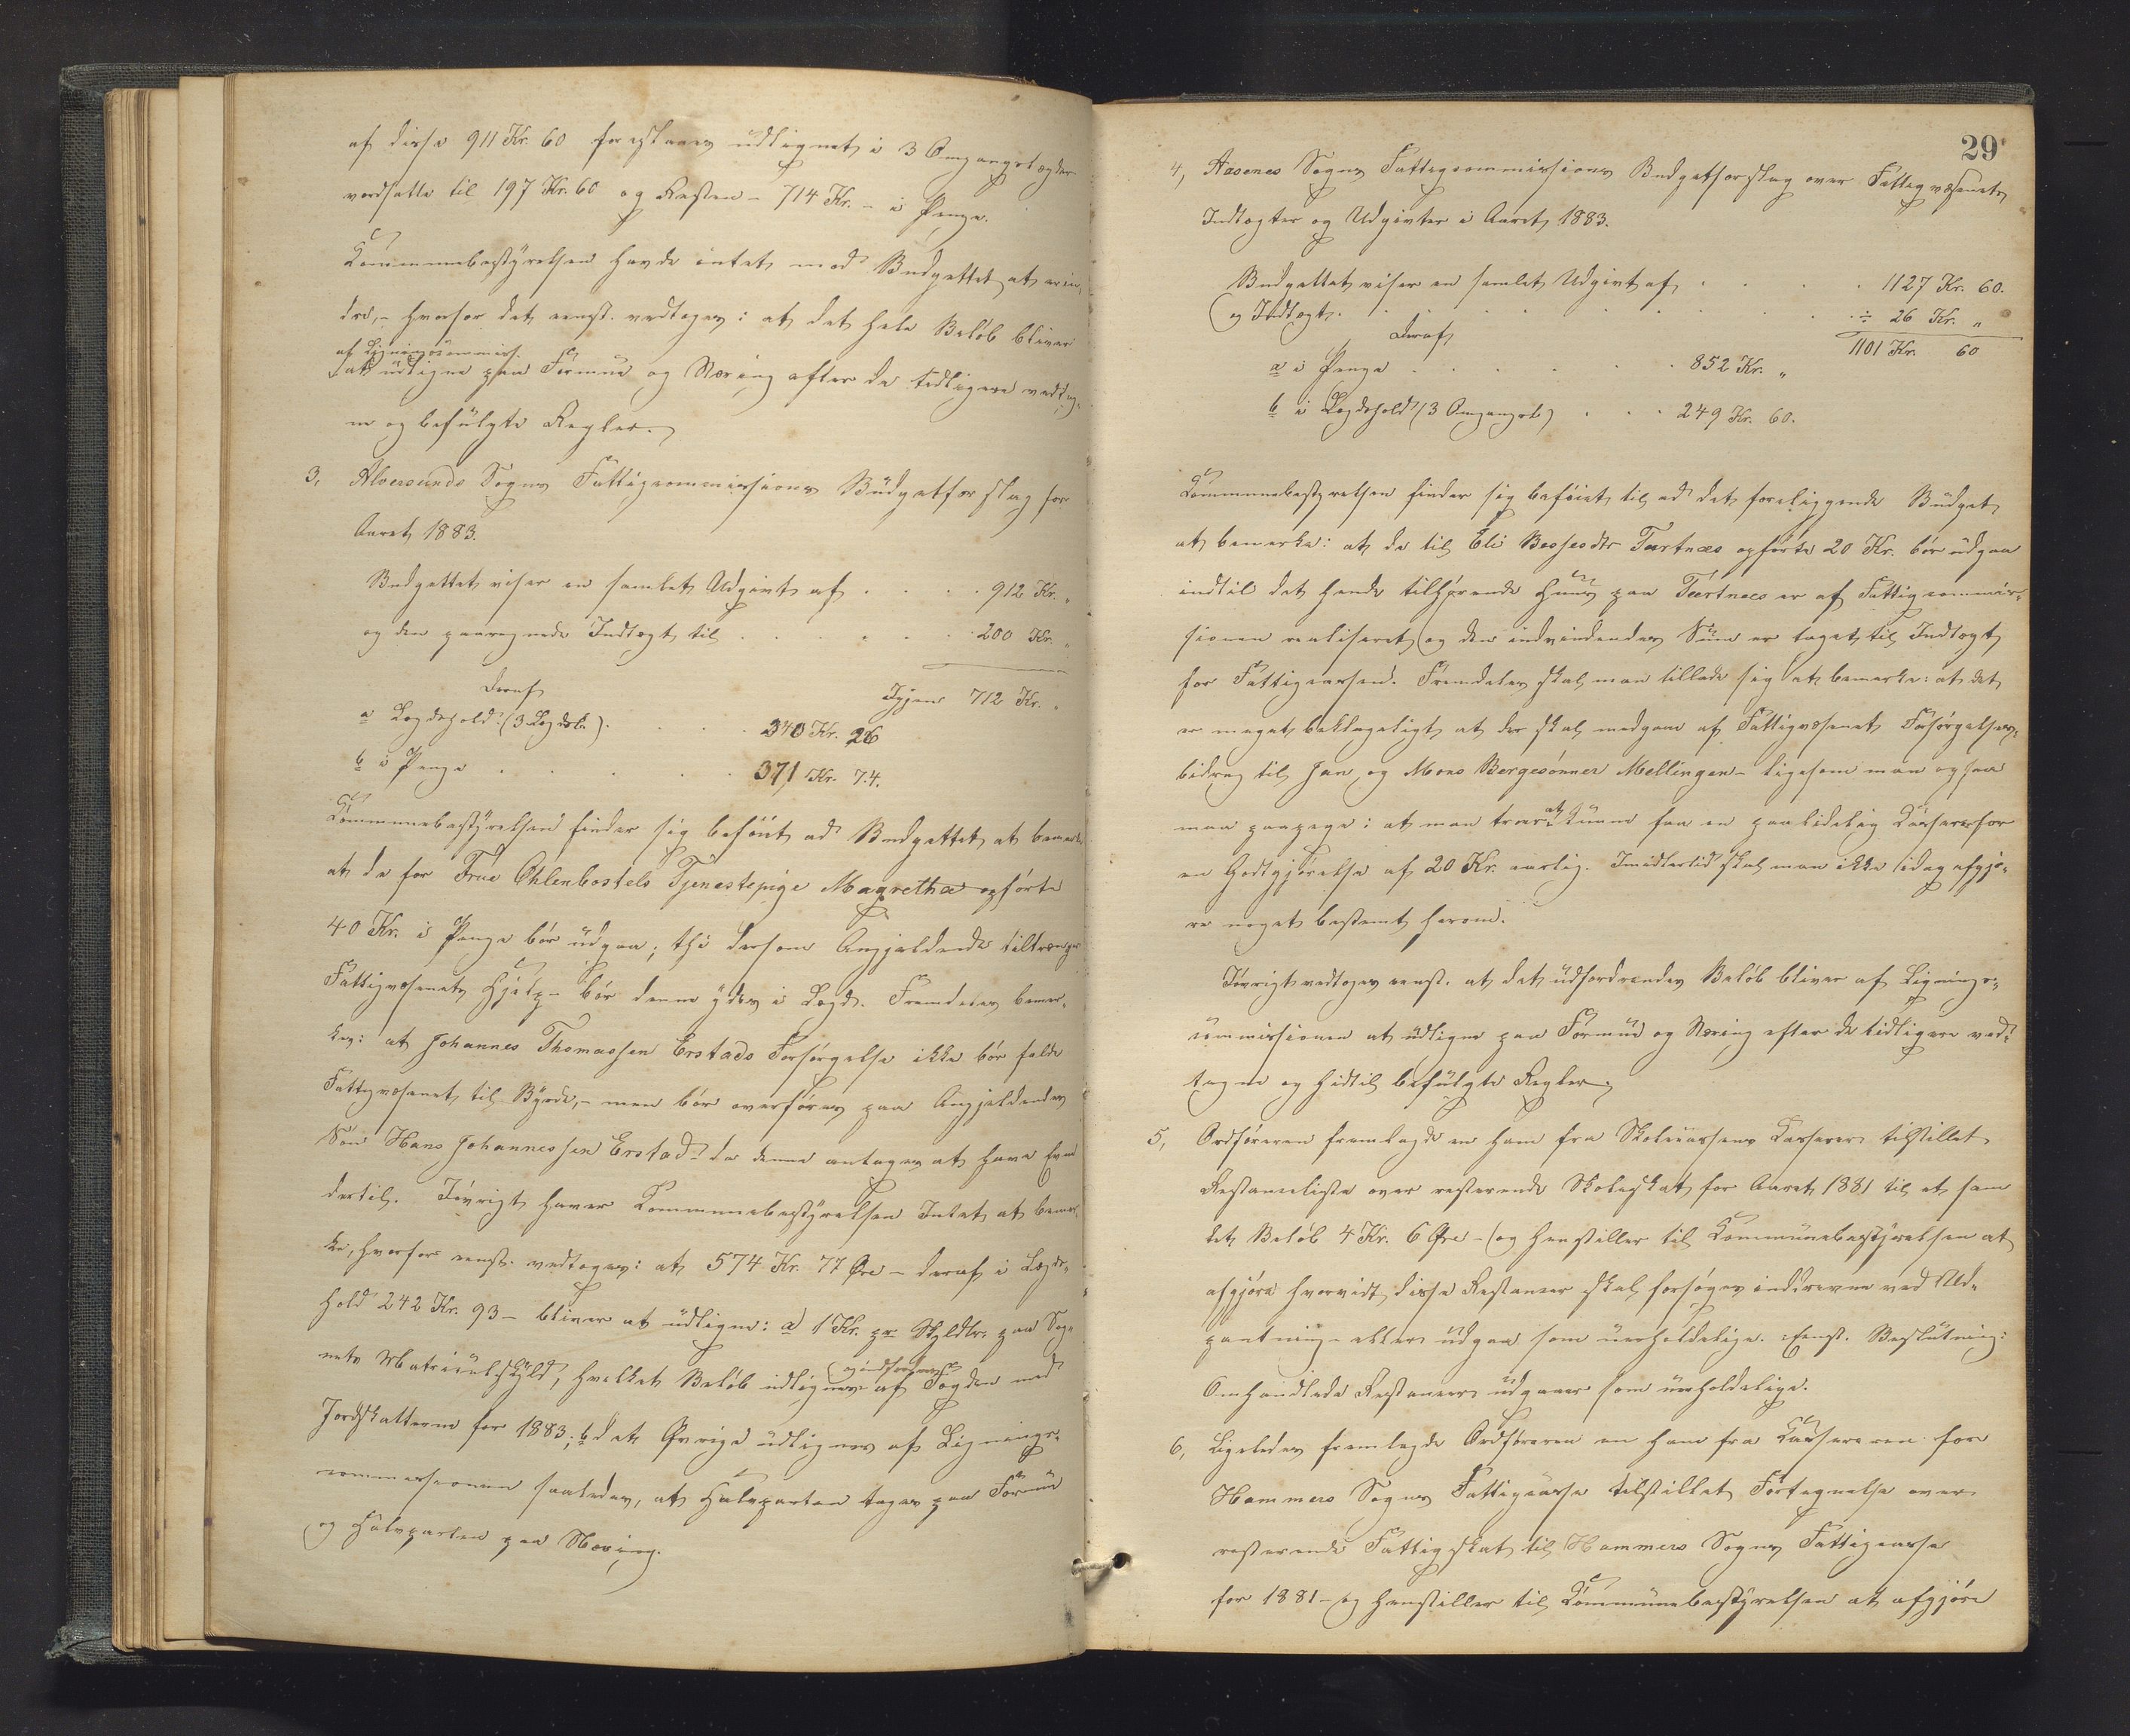 af disse 911 Kr. 60 foreslaaes udlignet i 3 Omgangslægder
værdsatte til 197 Kr. 60 og Resten – 714 Kr. – i Penge.
Kommunebestyrelsen havde intet mod Budgettet at erin-
dre, – hvorfor det eenst. vedtoges: at det hele Beløb bliver
af Ligningscommiss.
at udligne paa Formue og Næring efter de tidligere vedtag-
ne og befulgte Regler.
3, Alversunds Sogns Fattigcommissions Budgetforslag for
Aaret 1883.
Budgettet viser en samlet Udgivt af . . . . 912 Kr. "
og den paaregnede Indtægt til . . . . . . 200 Kr. "
Igjen 712 Kr. "
Deraf
a Lægdehold (3 Lægdsl.) . . . 340 Kr. 26
b i Penge . . . . . . 371 Kr. 74.
Kommunebestyrelsen finder sig beföiet ad Budgettet at bemærke
at de for Frue Ohlenbostels Tjenestepige Magretha opförte
40 Kr. i Penge bör udgaa; thi dersom Angjældende tiltrænger
Fattigvæsenets Hjælp – bör denne ydes i Lægd. Fremdeles bemær-
kes: at Johannes Thomassen Erstads Forsörgelse ikke bör falde
Fattigvæsenet til Byrde, – men bör overföres paa Angjældendes
Sön Hans Johannessen Erstad – da denne antages at have Evne
dertil. Iövrigt haver Kommunebestyrelsen Intet at bemær-
ke, hvorfor eenst. vedtoges: at 574 Kr. 77 Øre – deraf i Lægds-
hold 242 Kr. 93 – bliver at udligne: a) 1 Kr. pr Skyldlr. paa Sog-
nets Matriculskyld, hvilket Beløb udlignes (og indfordres) af Fogden med
Jordskatterne for 1883; b det Øvrige udlignes af Lignings-
commissionen saaledes, at Halvparten tages paa Formue
og Halvparten paa Næring.
29
4, Hasenes Sogns Fattigcommissions Budgetforslag over Fattigvæsenets
Indtægter og Udgivter i Aaret 1883.
Budgettet viser en samlet Udgivt af . . . . 1127 Kr. 60.
og Indtægt . . . . . . . . . ÷ 26 Kr. "
1101 Kr. 60
Deraf
a i Penge . . . . . . 852 Kr. "
b i Lægdehold (3 Omgangsl.) . . . 249 Kr. 60.
Kommunebestyrelsen finder sig beföiet til ad det foreliggende Budget
at bemærke: at de til Eli Bessesdtr Tertnæs opförte 20 Kr. bör udgaa
indtil det hende tilhørende Huus paa Tertnæs er af Fattigcommis-
sionen realiseret og den indvindendes Sum er taget til Indtægt
for Fattigcassen. Fremdeles skal man tillade sig at bemærke: at det
er meget beklageligt at der skal medgaae af Fattigvæsenet Forsörgelses-
bidrag til Jan og Mons Bergesönner Mellingen – ligesom man ogsaa
maa paapege: at man troer at kunne faa en paalidelig Kasserer for
en Godtgjörelse af 20 Kr. aarlig. Imidlertid skal man ikke idag afgjö-
re noget bestemt herom.
Iövrigt vedtoges eenst. at det udfordrendes Beløb bliver af Lignings-
commissionen at udligne paa Formue og Næring efter de tidligere ved-
tagne og hidtil befulgte Regler.
5, Ordföreren fremlagde en ham fra Skolecassens Kasserer tilstillet
Restanceliste over resterende Skoleskat for Aaret 1881 til et sam
let Beløb 4 Kr. 6 Øre – og henstiller til Kommunebestyrelsen at
afgjöre hvorvidt disse Restancer skal forsøges inddrevne ved Ud-
pantning – eller udgaa som uerholdelige. Eenst. Beslutning:
Omhandlede Restancer udgaaer som uerholdelige.
6, Ligeledes fremlagde Ordföreren en ham fra Kassereren for
Hammers Sogns Fattigcasse tilstillet Fortegnelse over
resterende Fattigskat til Hammers Sogns Fattigcasse
for 1881 – og henstiller til Kommunebestyrelsen at afgjöre